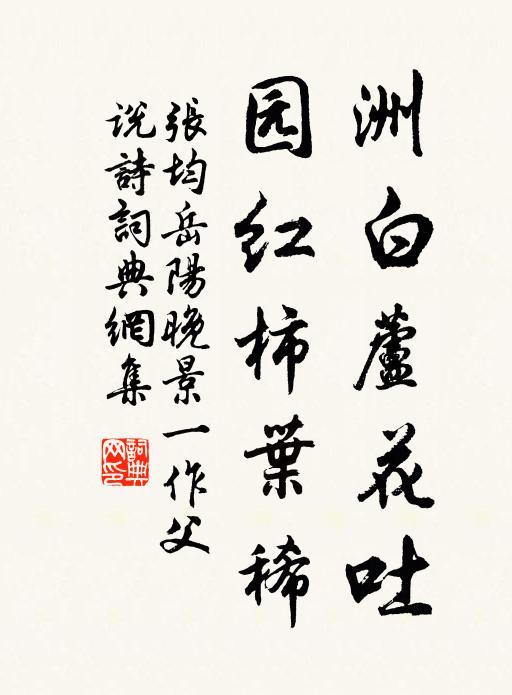 洲白蘆花吐
园红柿葉稀
張均岳陽晚景一作父
说詩詞典網集
詞典网印